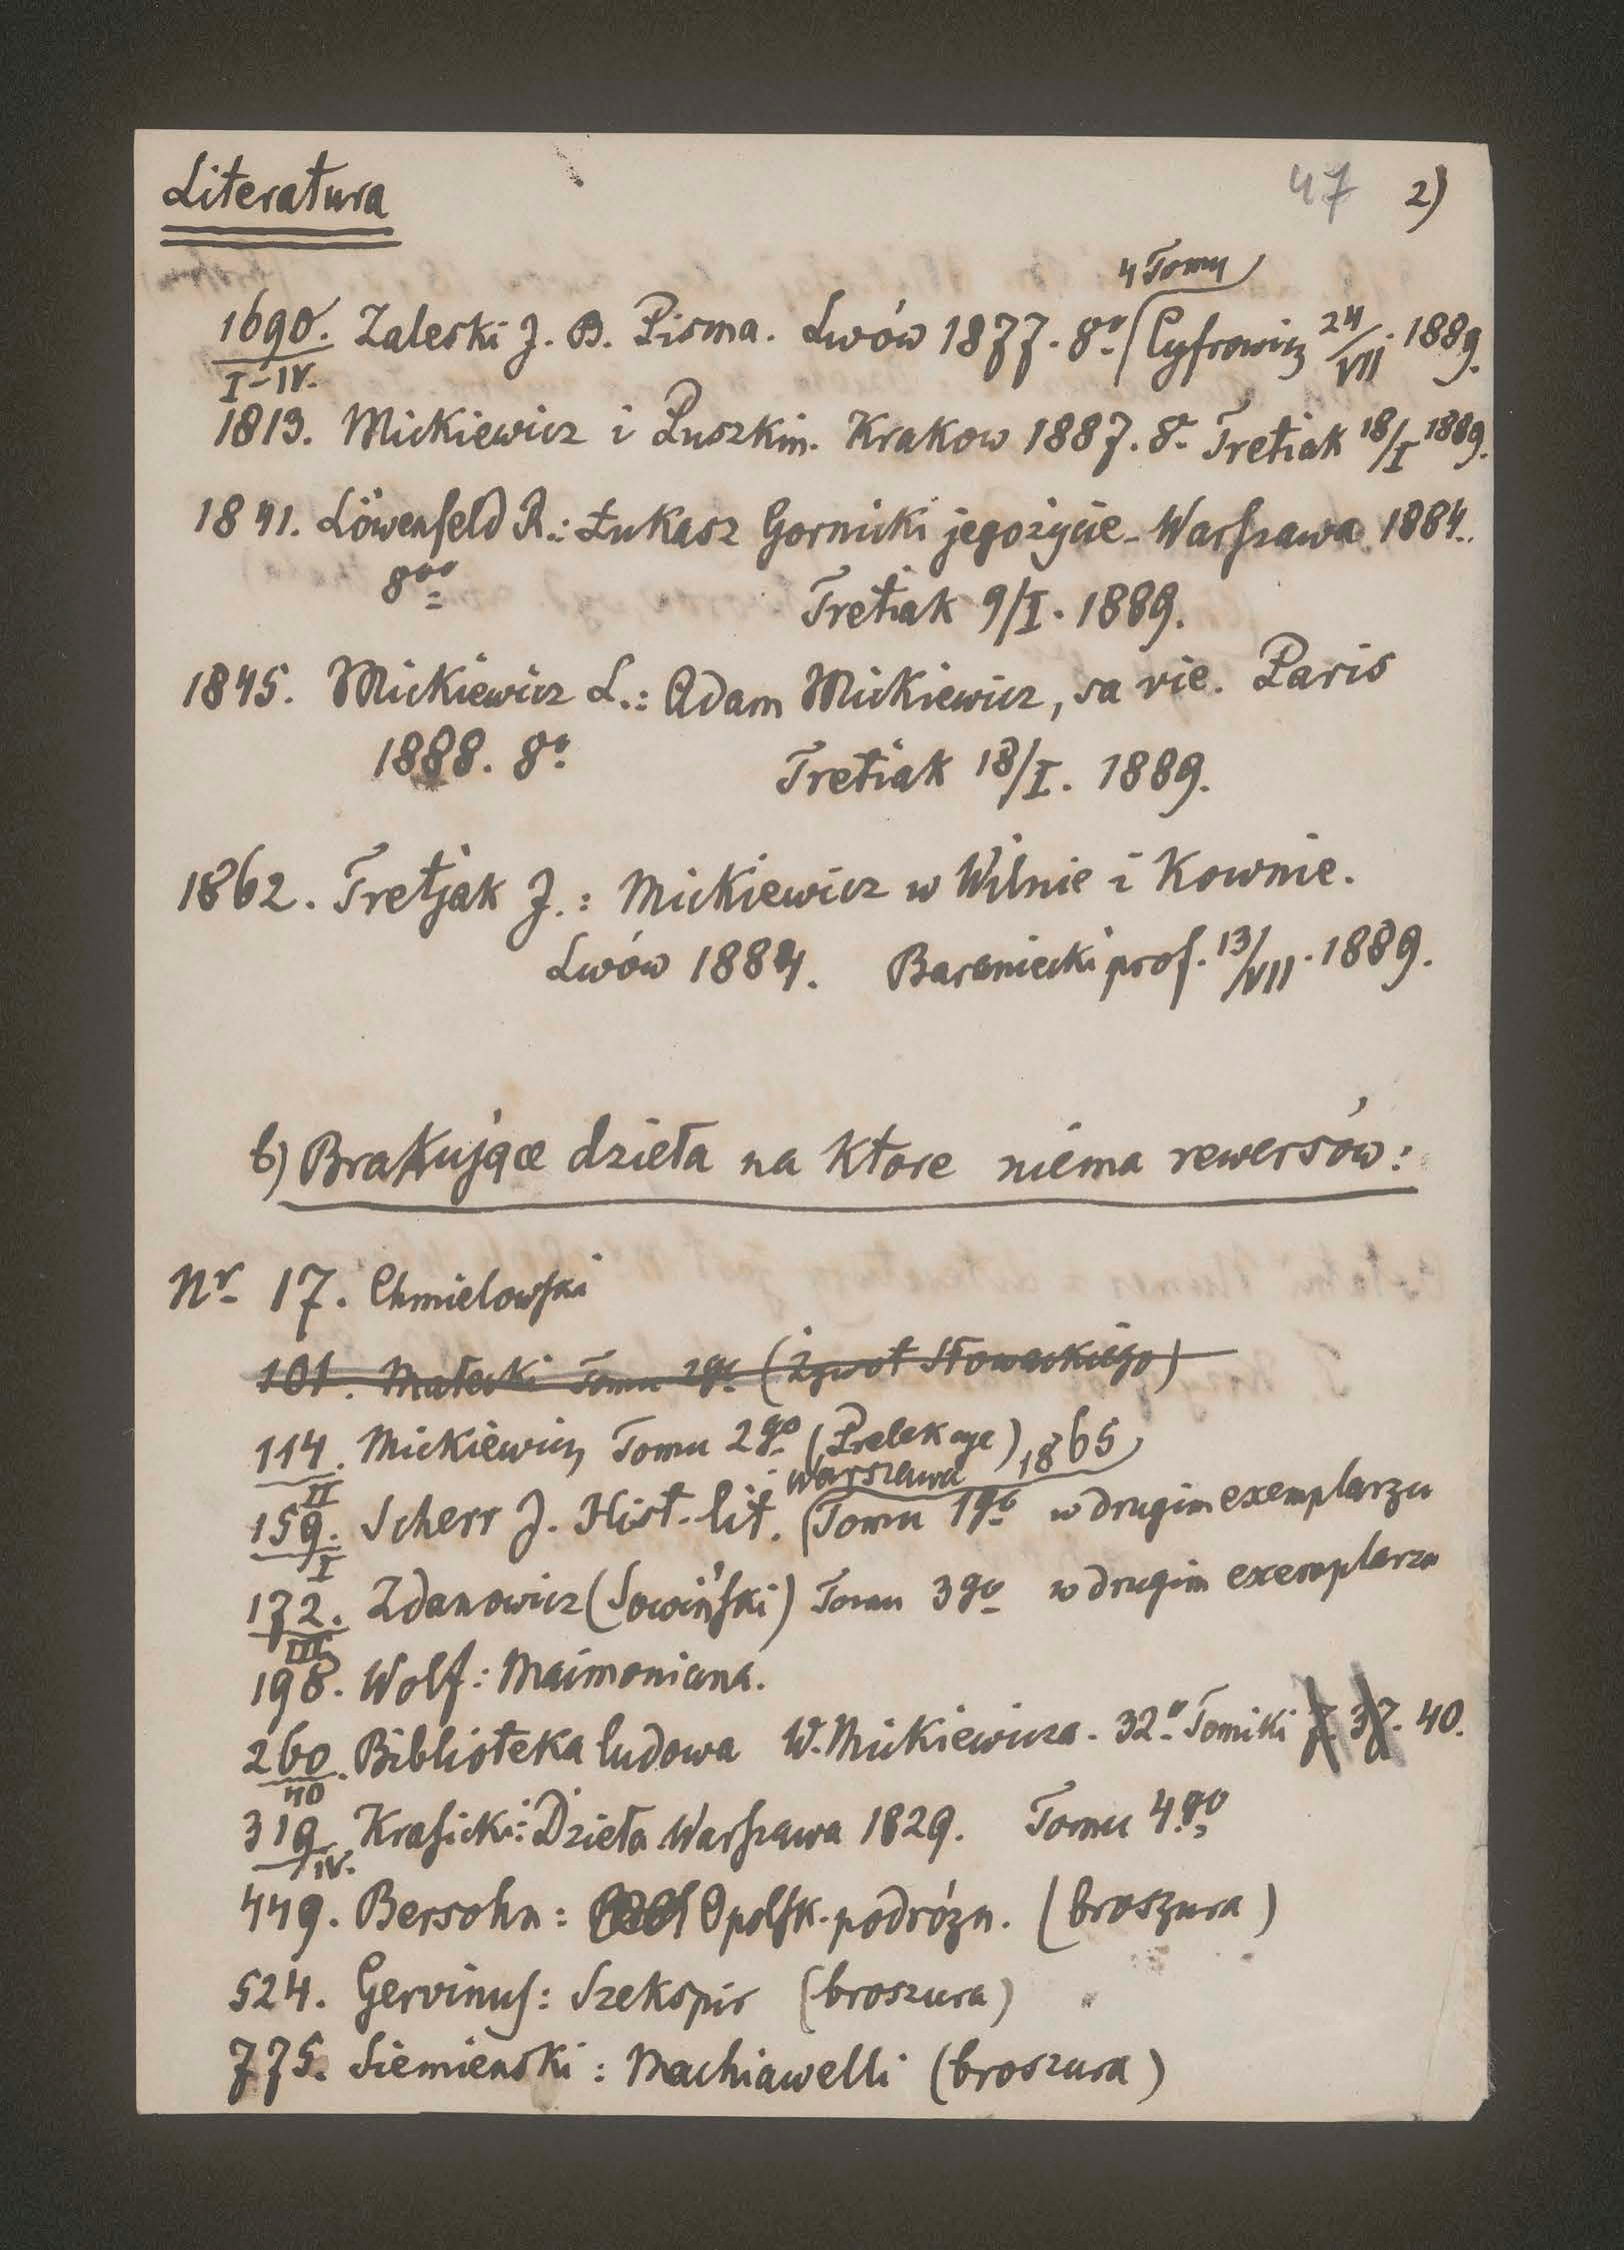 Literatura
47 2)
4 Tomy
1690. Zaleski J. B. Pisma. Lwów 1877. 8o. Cyfrowicz 24/VII. 1889.
I-IV.
1813. Mickiewicz i Puszkin. Krakow 1887. 8o. Tretiak 18/I 1889.
1841. Löwenfeld R.: Łukasz Gornicki jego życie. Warszawa 1884.
8oo Tretiak 9/I. 1889.
1845. Mickiewicz L.: Adam Mickiewicz, sa vie. Paris
1888. 8o. Tretiak 18/I. 1889.
1862. Tretjak J.: Mickiewicz w Wilnie i Kownie.
Lwów 1884. Baraniecki prof. 13/VII. 1889.
b) Brakujące dzieła na ktore niema rewersów:
Nr 17. Chmielowski
101. Małecki Tomu 2go (Żywot Słowackiego)
114. Mickiewicz Tomu 2go (Prelekcye)
II
Warszawa 1865
159. Scherr J. Hist. lit. (Tomu 1go w drugim exemplarzu
I
172. Zdanowicz (Sowiński) Tomu 3go w drugim exemplarzu
III
198. Wolf: Maimoniana.
260. Biblioteka ludowa W. Mickiewicza. 32o. Tomiki 7. 37. 40.
40
319 Krasicki: Dzieła Warszawa 1829. Tomu 4go
IV.
449. Bersohn: O polsk. podrózn. (broszura)
524. Gervinus: Szekspir (broszura)
775. Siemienski: Machiawelli (broszura)